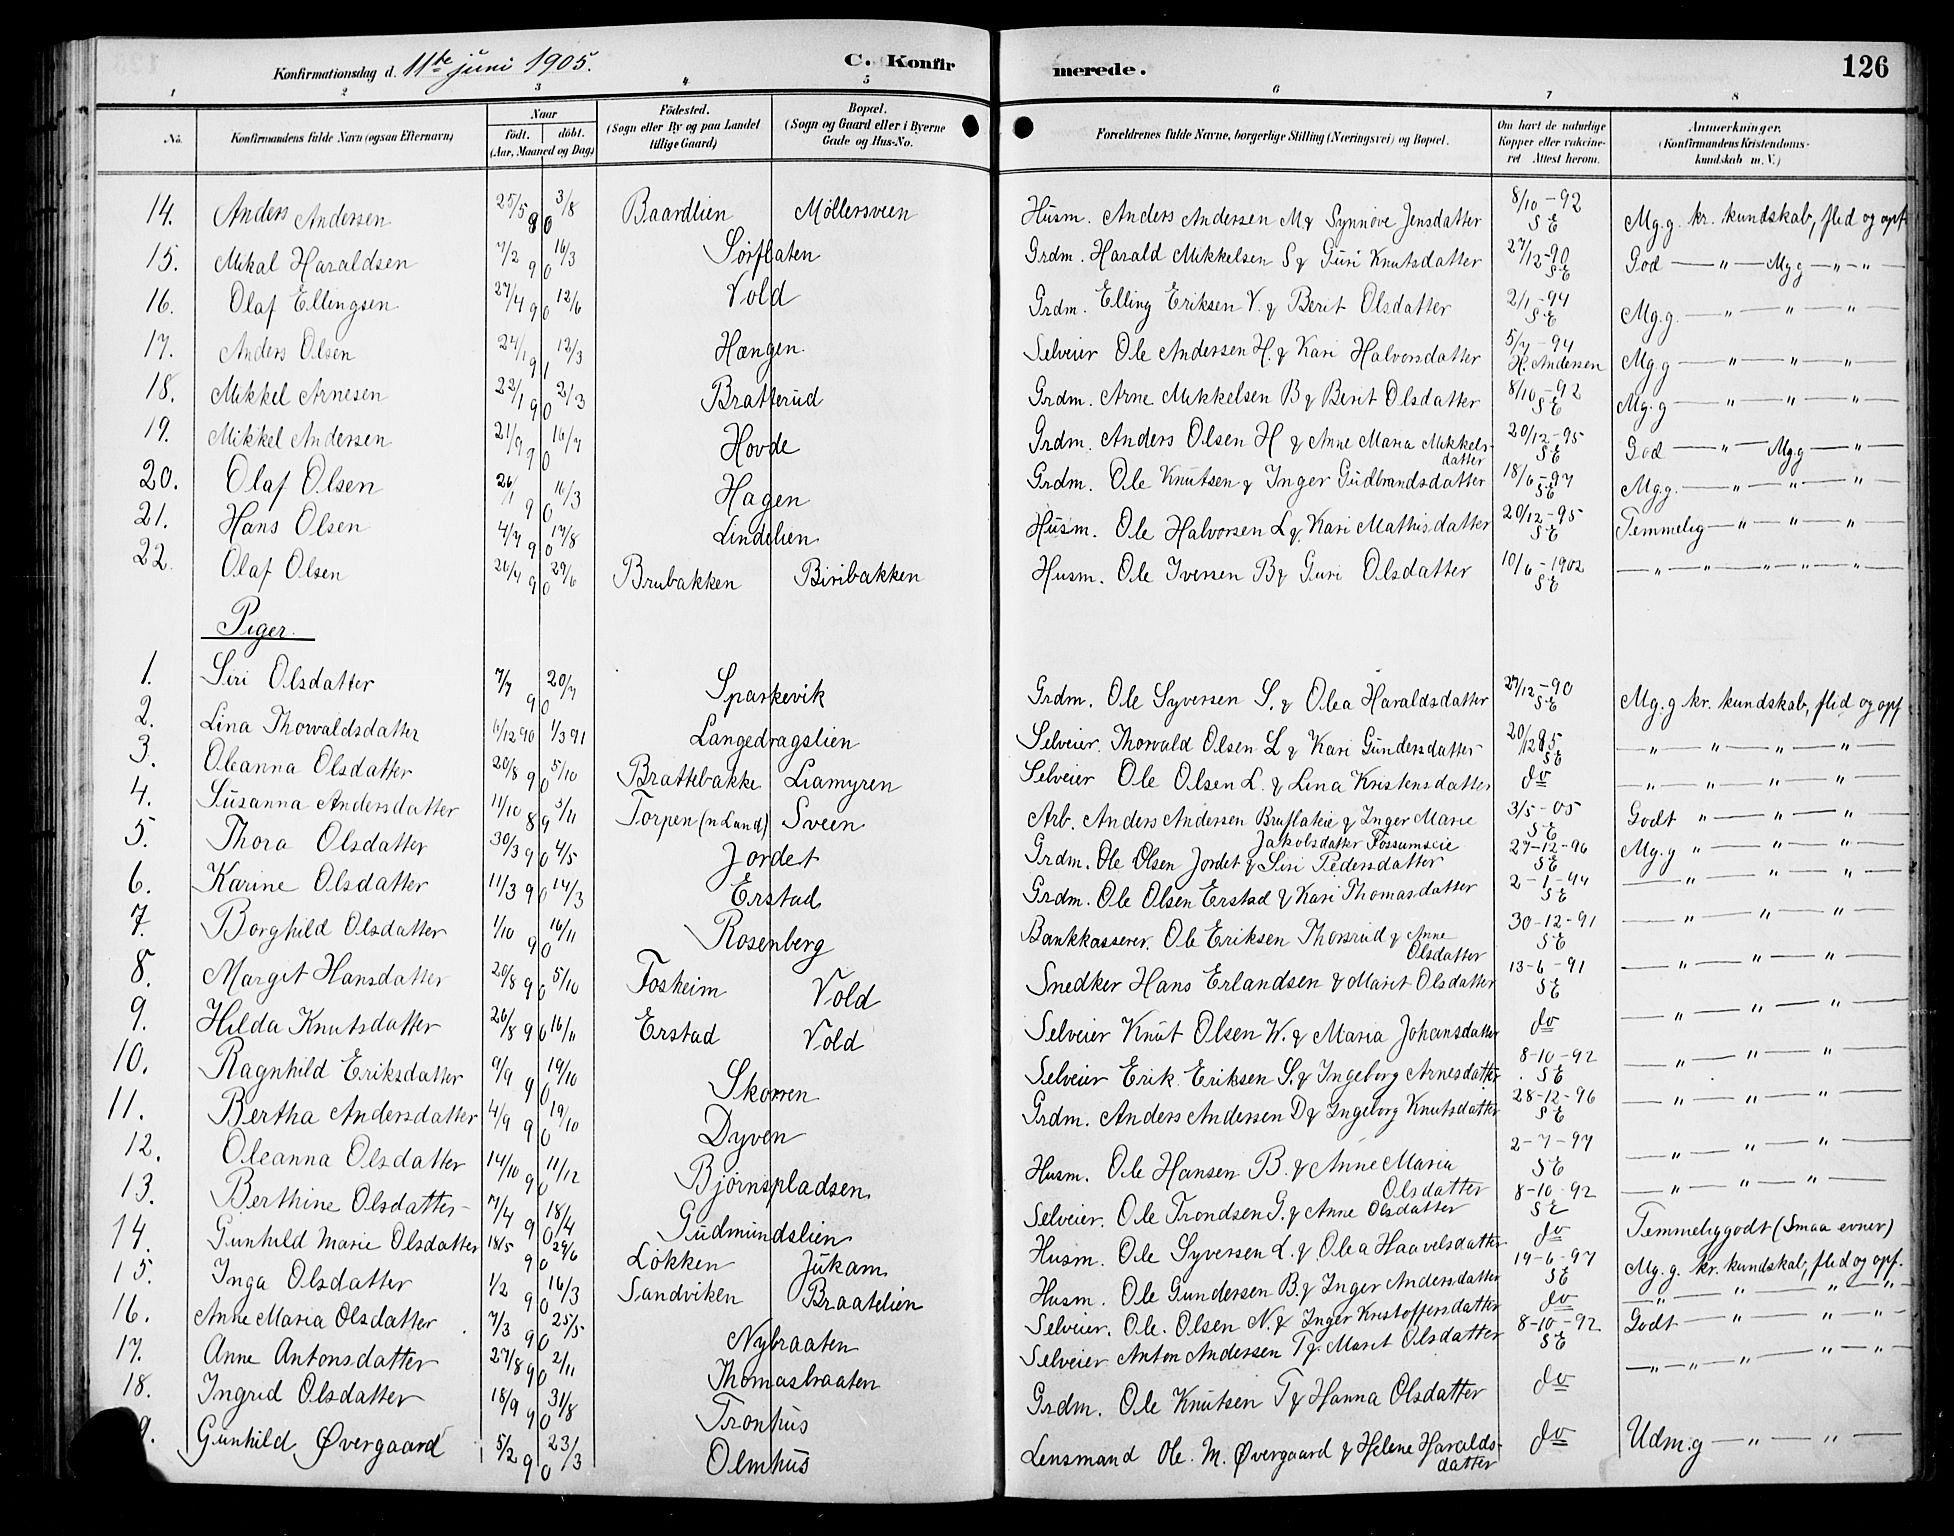 Konfirmationsdag d. 11te juni 1905. C. Konfirmerede. 126
1 2 3 4 5 6 7 8
No. Konfirmandens fulde Navn (ogsaa Efternavn) Naar födt. döbt. (Aar, Maaned og Dag) Födested. (Sogn eller By og paa Landet tillige Gaard) Bopæl. (Sogn og Gaard eller i Byerne Gade og Hus-No. Forældrenes fulde Navne, borgerlige Stilling (Næringsvei) og Bopæl. Om havt de naturlige Kopper eller vakcineret Attest herom. Anmærkninger. (Konfirmandens Kristendomskundskab m. V.)
14. Anders Andersen 25/5 3/8 80 Baardlien Möllersveen Husm. Anders Andersen M. & Synnöve Jensdatter 8/10-92 SE Mg.g. kr. kundskab, flid og opf.
15. Mikal Haraldsen 7/2 16/3 90 Sörflaten Grdm. Harald Mikkelsen S & Guri Knutsdatter 27/12-90 SE God — " — Mg g — " — " —
16. Olaf Ellingsen 27/4 12/6 90 Vold Grdm. Elling Eriksen V. & Berit Olsdatter 2/1-94 SE Mg.g. — " — " — " —
17. Anders Olsen 24/1 12/3 91 Hængen Selveier Ole Andersen H. & Kari Halvorsdatter 5/7-94 H. Andersen Mg.g — " — " — " —
18. Mikkel Arnesen 22/1 2/3 90 Bratterud Grdm. Arne Mikkelsen B & Berit Olsdatter 8/10-92 SE Mg.g — " — " — " —
19. Mikkel Andersen 21/9 16/7 90 Hovde Grdm. Anders Olsen H & Anne Maria Mikkelsdatter 20/12-95 SE God — " — Mg.g — " —
20. Olaf Olsen 26/1 16/3 90 Hagen Grdm. Ole Knutsen & Inger Gudbrandsdatter 18/6-97 SE Mg.g. — " — " — " —
21. Hans Olsen 4/7 17/8 90 Lindelien Husm. Ole Halvorsen L & Kari Mathisdatter 20/12-95 SE Temmelig — " — " — " —
22. Olaf Olsen 26/4 29/6 90 Brubakken Biribakken Husm. Ole Iversen B & Guri Olsdatter 10/6-1902 SE — " — " — " — " — " —
Piger.
1. Siri Olsdatter 7/7 20/7 90 Sparkevik Grdm. Ole Syversen S. & Olea Haraldsdatter 27/12-90 SE Mg.g kr. kundskab, flid og opf
2. Lina Thorvaldsdatter 6/12 90 1/3 91 Langedragslien Selveier. Thorvald Olsen L & Kari Gundersdatter 20/12 95 SE — " — " — " — " —
3. Oleanna Olsdatter 20/8 5/10 90 Brattebakke Liamyren Selveier Ole Olsen L. & Lina Kristensdatter do — " — " — " — " —
4. Susanna Andersdatter 11/10 3/11 89 Torpen (n Land) Sveen Arb. Anders Andersen Bruflateie & Inger Marie Jakobsdatter Fossumseie 3/5-05 SE Godt " — " — " —
5. Thora Olsdatter 30/3 4/5 90 Jordet Grdm. Ole Olsen Jordet & Siri Pedersdatter 27-12-96 SE Mg.g " — " — " —
6. Karine Olsdatter 11/3 14/3 90 Erstad Grdm. Ole Olsen Erstad & Kari Thomasdatter 2-1-94 SE — " — " — " —
7. Borghild Olsdatter 1/10 16/11 90 Rosenberg Bankkasserer. Ole Eriksen Thorsrud & Anne Olsdatter 30-12-91 SE — " — " — " —
8. Margit Hansdatter 20/8 5/10 90 Fosheim Vold Snedker Hans Erlandsen & Marit Olsdatter 13-6-91 SE — " — " — " —
9. Hilda Knutsdatter 26/8 16/11 90 Erstad Vold Selveier Knut Olsen W. & Maria Johansdatter do — " — " — " —
10. Ragnhild Eriksdatter 9/9 19/10 90 Skorren Selveier Erik Eriksen S. & Ingeborg Arnesdatter 8-10-92 SE — " — " — " —
11. Bertha Andersdatter 4/9 19/10 90 Dyven Grdm. Anders Andersen D & Ingeborg Knutsdatter 28-12-96 SE — " — " — " —
12. Oleanna Olsdatter 14/10 11/12 90 Björnspladsen Husm. Ole Hansen B. & Anne Maria Olsdatter 2-7-97 SE — " — " — " —
13. Berthine Olsdatter 7/4 18/4 90 Gudmundslien Selveier. Ole Trondsen G. & Anne Olsdatter 8-10-92 SE — " — " — " —
14. Gunhild Marie Olsdatter 18/5 29/6 90 Lökken Jukam Husm. Ole Syversen L. & Olea Haavelsdatter do Temmeliggodt (Smaa evner)
15. Inga Olsdatter 1/2 16/3 90 Sandviken Braatelien Husm. Ole Gundersen B. & Inger Andersdatter 19-6-97 SE Mg.g. kr. kundskab, flid og opf.
16. Anne Maria Olsdatter 7/3 25/5 90 Nybraaten Selveier. Ole. Olsen N. & Inger Kristoffersdatter do — " — " — " — " —
17. Anne Antonsdatter 27/8 2/11 90 Thomasbraaten Selveier Anton Andersen T & Marit Olsdatter 8-10-92 SE Godt — " — " — " —
18. Ingrid Olsdatter 18/9 31/8 90 Tronhus Grdm. Ole Knutsen T & Hanna Olsdatter do — " — " — " — " — " —
9. Gunhild Övergaard 5/2 23/3 90 Olmhus Lensmand Ole. M. Övergaard & Helene Haraldsdatter do Udm.g — " — " —